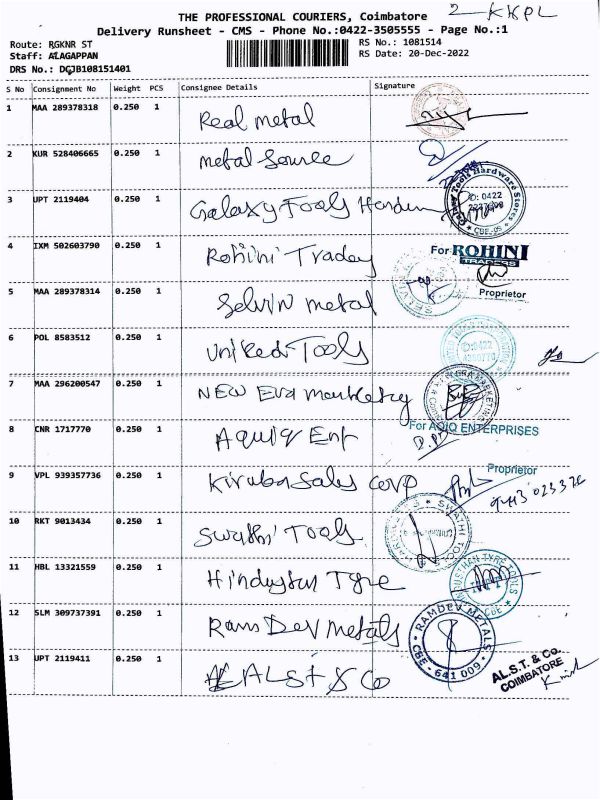 2-KKPL
THE PROFESSIONAL COURIERS, Coimbatore
Delivery Runsheet - CMS - Phone No.:0422-3505555 - Page No.:1
Route: RGKNR ST
RS No.: 1081514
Staff: ALAGAPPAN
RS Date: 20-Dec-2022
DRS No.: DGJB108151401
S No Consignment No Weight PCS Consignee Details Signature
1 MAA 289378318 0.250 1 Real metal
2 KUR 528406665 0.250 1 metal source
3 UPT 2119404 0.250 1 Galaxy Tools
ID: 0422
CBE-09
4 IXM 502603790 0.250 1 Rohini Trades
For ROHINI
TRADERS
Proprietor
5 MAA 289378314 0.250 1 Selvin metal
6 POL 8583512 0.250 1 United Tools
7 MAA 296200547 0.250 1 NEW Era marketing
8 CNR 1717770 0.250 1 Aquiq Ent
For AQIQ ENTERPRISES
Proprietor
9 VPL 939357736 0.250 1 Kiruba Sales Corp
10 RKT 9013434 0.250 1 Swathi Tools
SWATHI TOOLS
11 HBL 13321559 0.250 1 Hindustan Tyre
HINDUSTHAN TYRE TOOLS
CBE
12 SLM 309737391 0.250 1 Ram Dev Metals
RAMDEV METALS
CBE - 641 009
13 UPT 2119411 0.250 1 ALST & Co
AL.S.T. & Co.
COIMBATORE